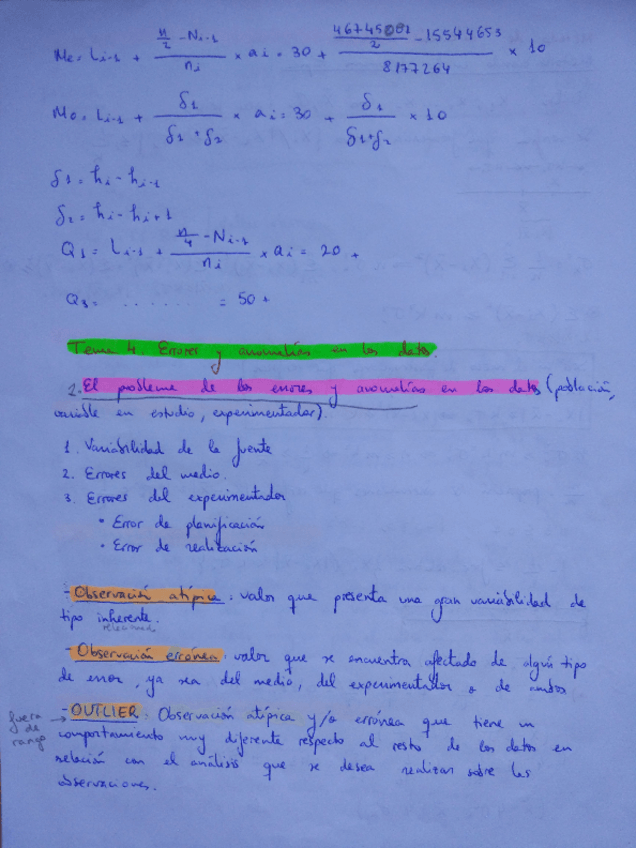 Me = Li-1 + (n/2 - Ni-1)/ni × ai = 30 + (46745001/2 - 15544653)/8177264 × 10
Mo = Li-1 + δ1/(δ1 + δ2) × ai = 30 + δ1/(δ1+δ2) × 10
δ1 = hi - hi-1
δ2 = hi - hi+1
Q1 = Li-1 + (n/4 - Ni-1)/ni × ai = 20 +
Q3 = ........ = 50 +
Tema 4. Errores y anomalías en los datos.
2. El problema de los errores y anomalías en los datos (población,
variable en estudio, experimentador).
1. Variabilidad de la fuente
2. Errores del medio.
3. Errores del experimentador
• Error de planificación
• Error de realización
- Observación atípica: valor que presenta una gran variabilidad de
tipo inherente.
- Observación errónea: valor que se encuentra afectado de algún tipo
de error, ya sea del medio, del experimentador o de ambos
fuera de rango → - OUTLIER: Observación atípica y/o errónea que tiene un
comportamiento muy diferente respecto al resto de los datos en
relación con el análisis que se desea realizar sobre las
observaciones.